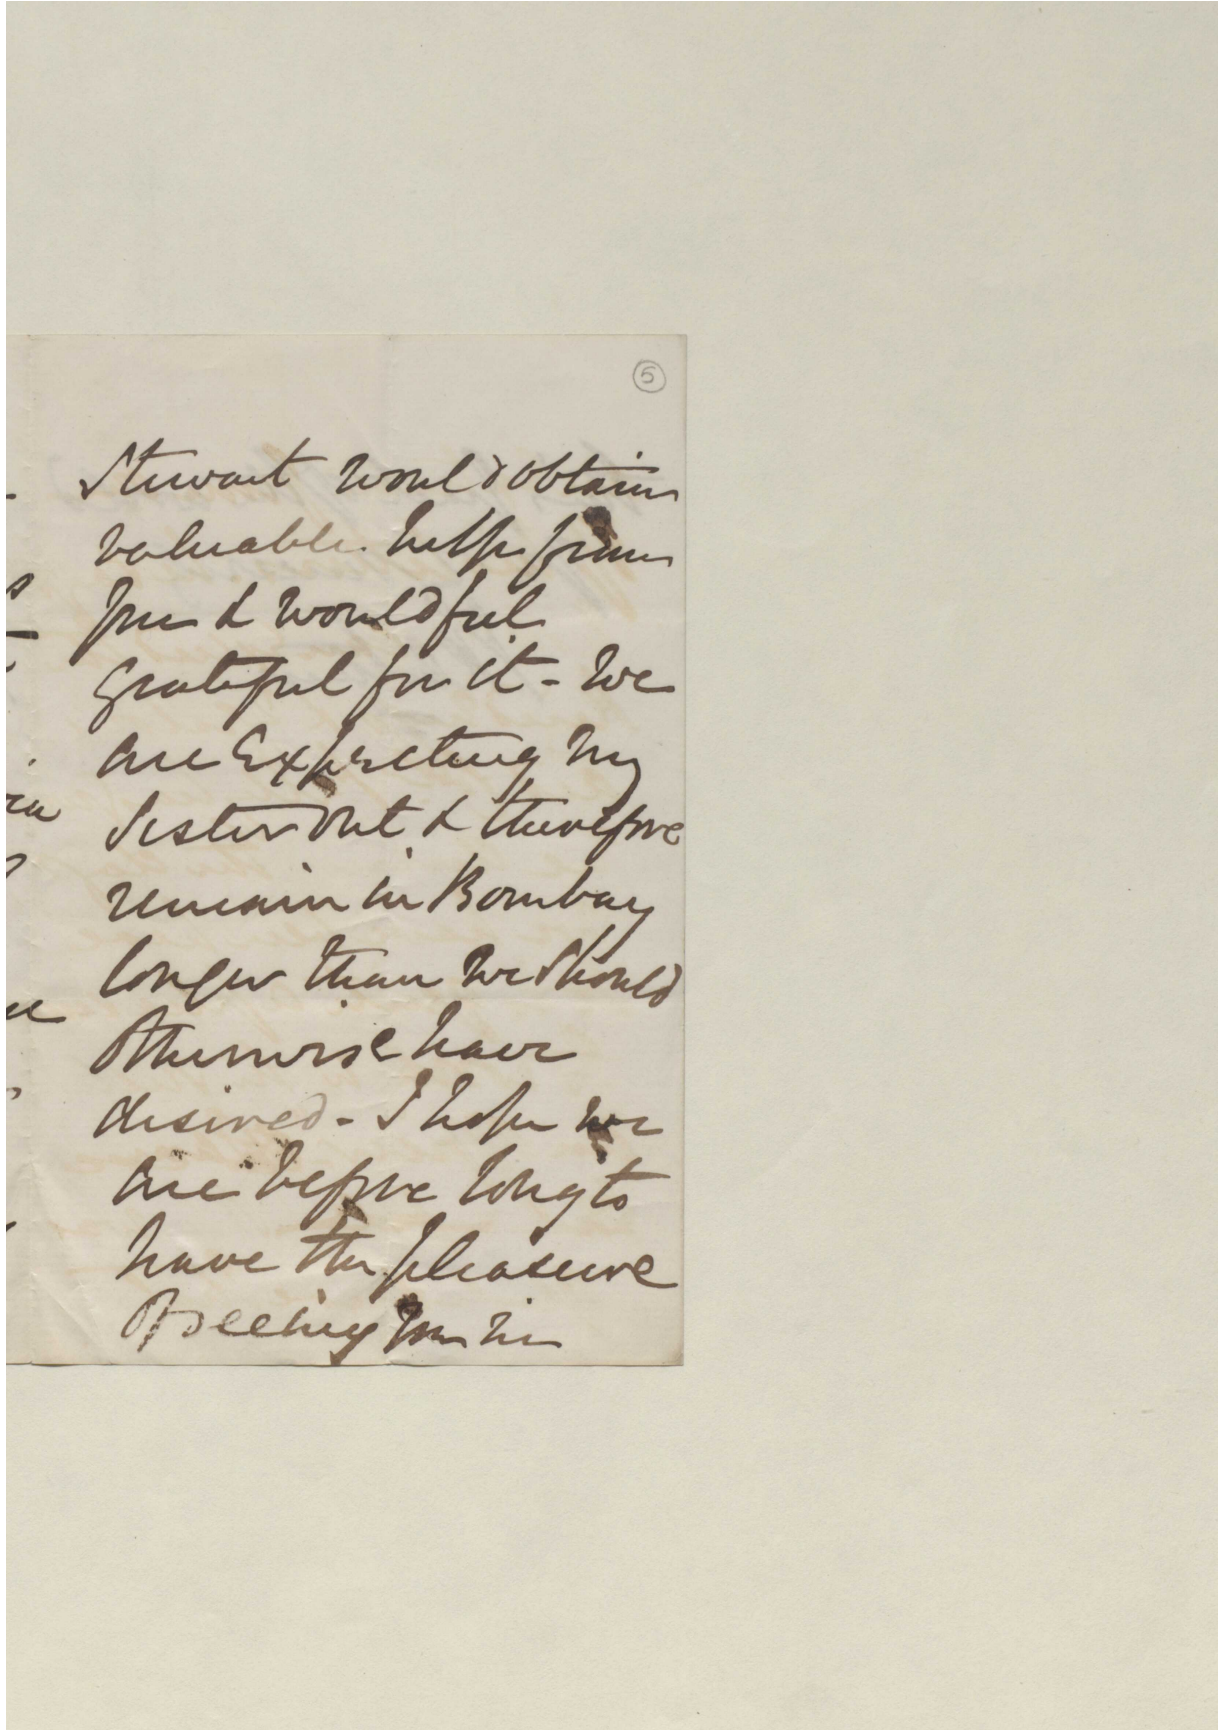 5
Stewart would obtain
valuable help from
you & would feel
grateful for it - We
are Expecting my
Sister out & therefore
remain in Bombay
longer than we should
otherwise have
desired - I hope we
are before long to
have the pleasure
of seeing you in